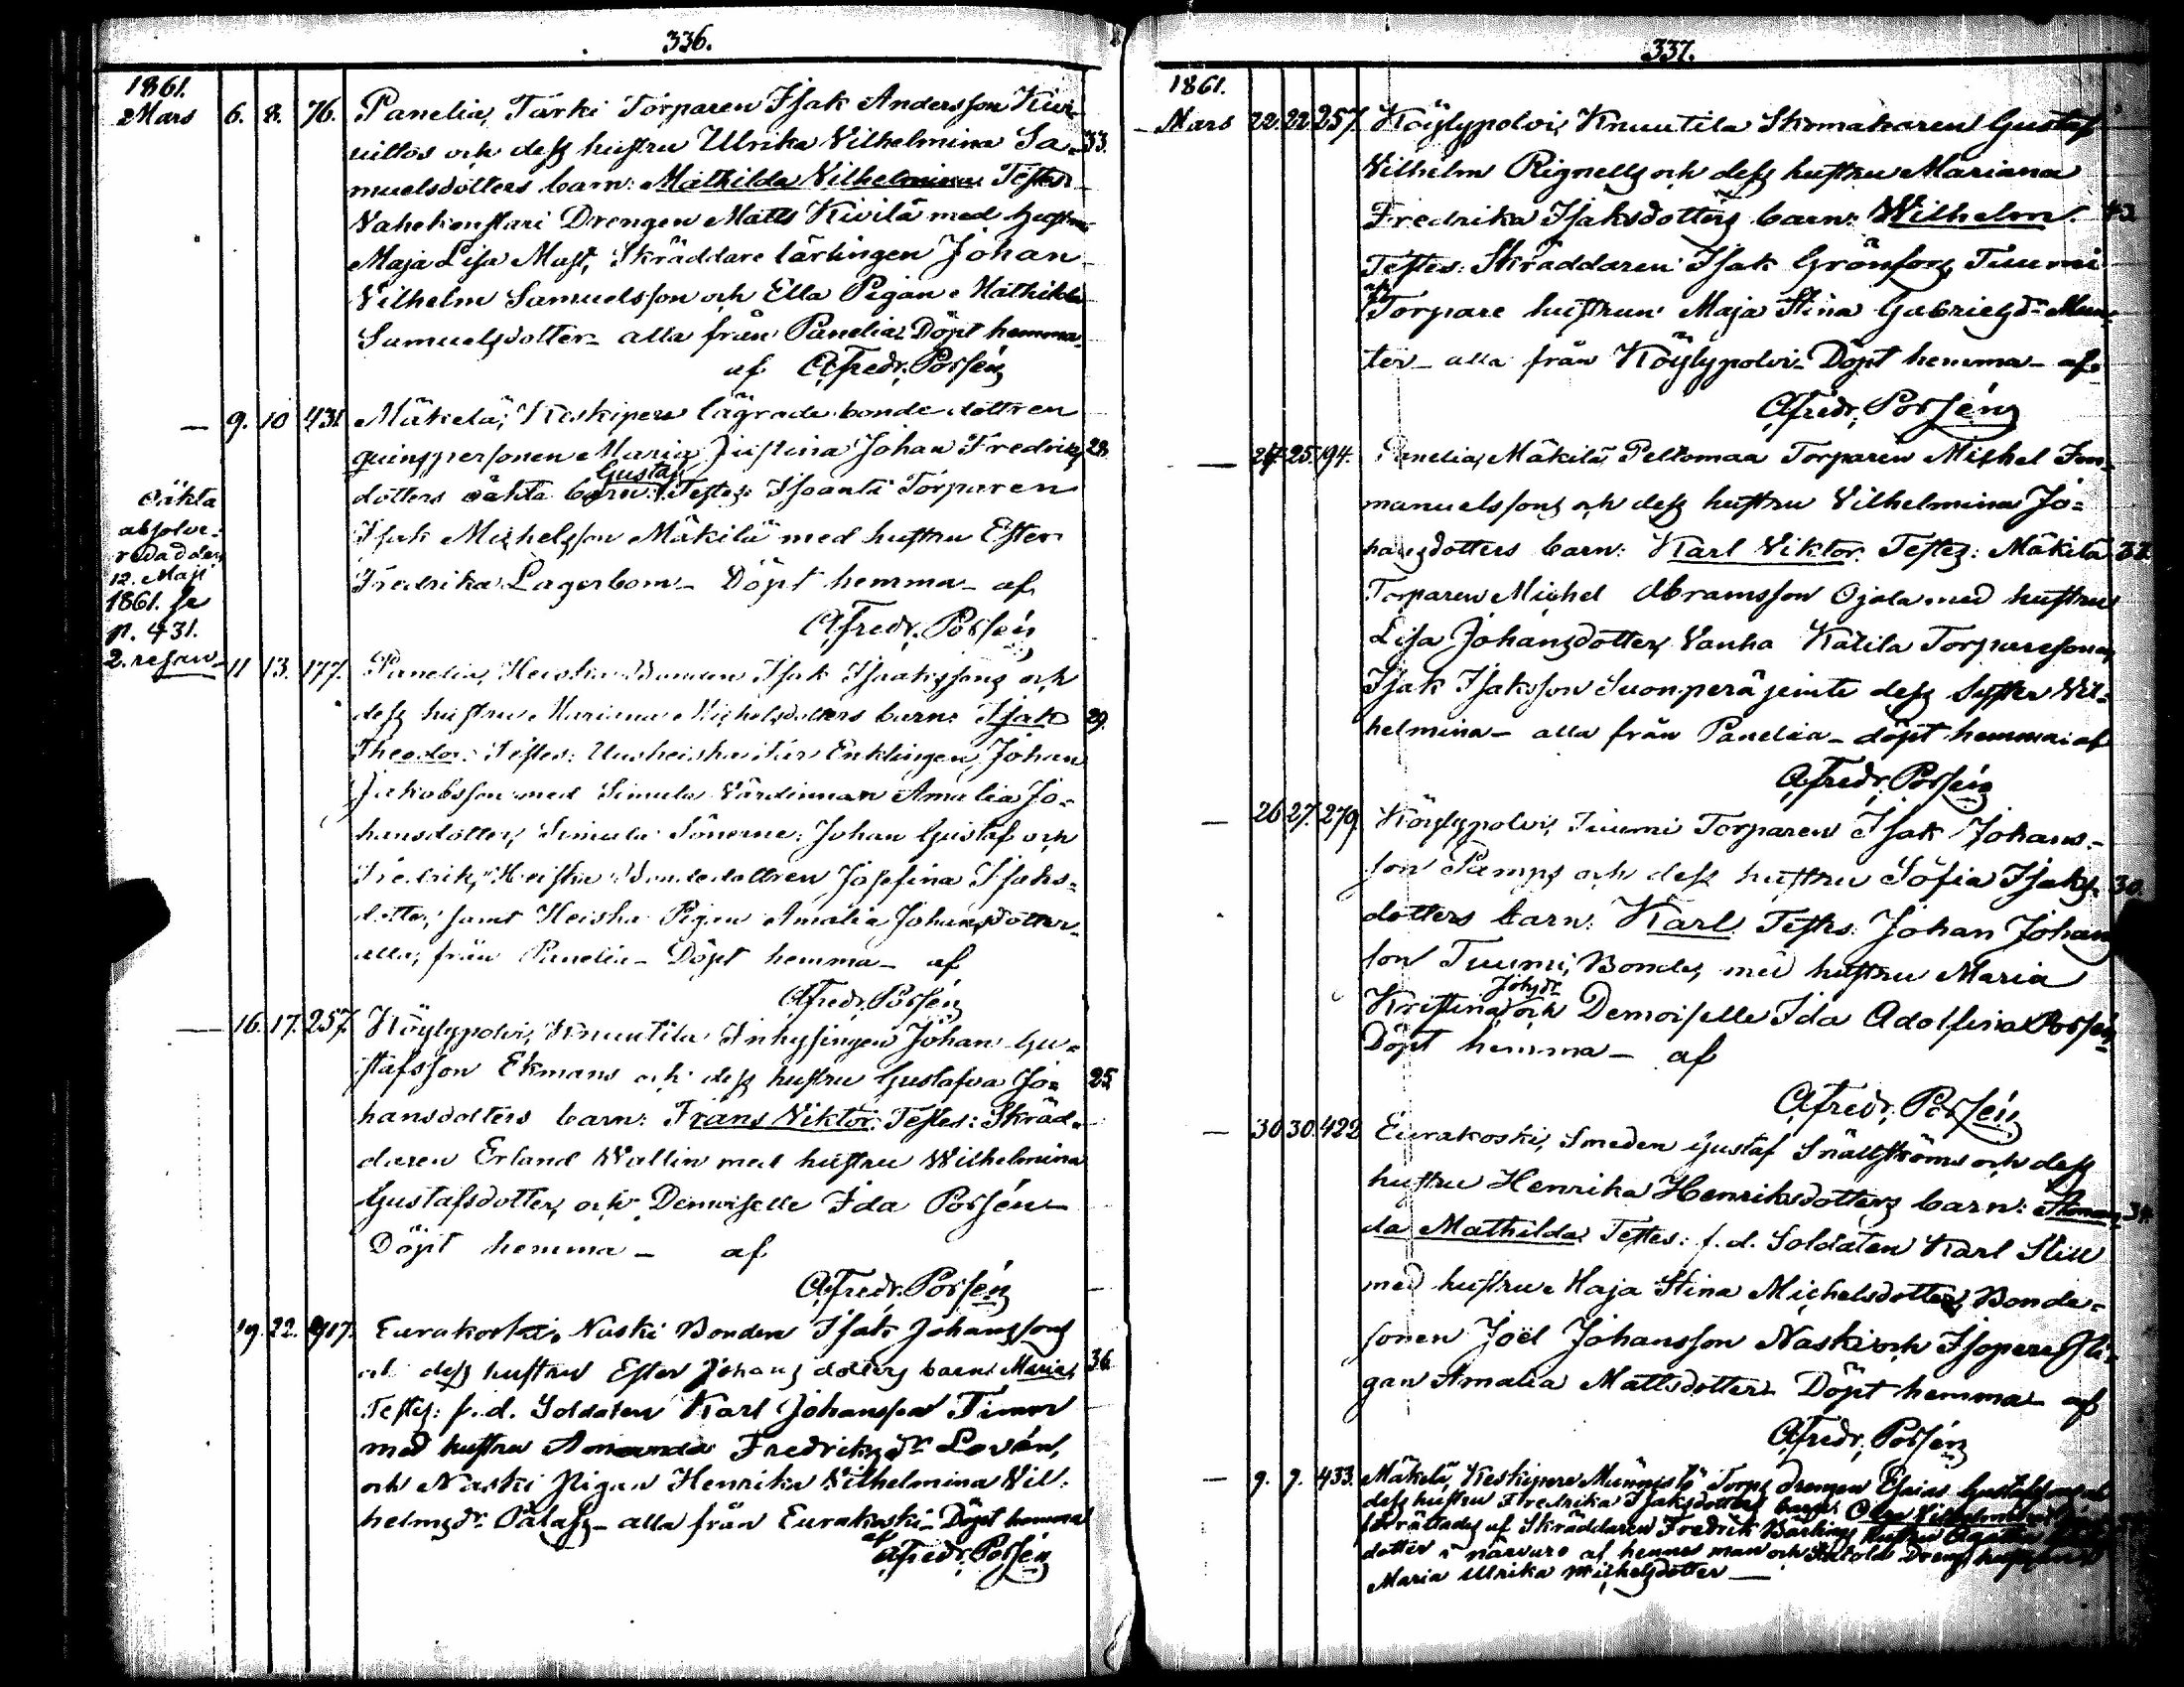 336.
1861.
Mars 6. 8. 76. Panelia, Tärki Torparen Isak Andersson Kivi-
niittos och dess hustru Ulrika Vilhelmina Sa- 33.
muelsdotters barn: Mathilda Vilhelmina. Testes:
Drengen Matts Kivilä med hustru
Maja Lisa Matsd. Skräddare lärlingen Johan
Vilhelm Samuelsson och Ella Pigan Mathilda
Samuelsdotter - alla från Panelia. Döpt hemma
af Afredr. Porsén
— 9. 10 431 Mäkelä, Keskipere lägrade bonde dottren
qvinspersonen Maria Justina Johan Fredriks 28
Gustaf
dotters oäkta barn: Testes: Isoantti Torparen
Isak Michelsson Mäkilä med hustru Ester
Fredrika Lagerbom - Döpt hemma - af
Afredr. Porsén
Oäkta
absolve-
rad den
12. Maji
1861. se
p. 431.
2. resan
11 13. 177. Panelia, Heiska Bonden Isak Isaakssons och
dess hustru Mariana Michelsdotters barn: Isak 29.
Theodor. Testes: Uusheiska Enklingen Johan
Jakobsson med Simula Värdinnan Amalia Jo-
hansdotter, Simula Sönerne: Johan Gustaf och
Fredrik, Heiska Bondedottren Josefina Isaks-
dotter, samt Heiska Pigan Amalia Johansdotter
alla från Panelia - Döpt hemma - af
Afredr. Porsén
— 16. 17. 257. Köylypolvi, Knuutila Inhysingen Johan Gu-
stafsson Ekmans och dess hustru Gustafva Jo- 25
hansdotters barn: Frans Viktor. Testes: Skräd-
daren Erland Wallin med hustru Wilhelmina
Gustafsdotter, och Demoiselle Ida Porsén -
Döpt hemma - af
Afredr. Porsén
19. 22. 417. Eurakoski, Naski Bonden Isak Johanssons
och dess hustru Ester Johans dotters barn: Maria, 36.
Testes: f. d. Soldaten Karl Johansson Timor
med hustru Amanda Fredriksdr. Lovén,
och Naski Pigan Henrika Vilhelmina Vil-
helmsdr. - alla från Eurakoski - Döpt hemma
af
Afredr. Porsén
337.
1861.
Mars 22. 22 257. Köylypolvi, Knuutila Skomakaren Gustaf
Vilhelm Rignells och dess hustru Mariana
Fredrika Isaksdotters barn: Wilhelm. 43
Testes: Skräddaren Isak Grönfors, Tuumi
och
Torpare hustrun Maja Stina Gabrielsd. Mun-
ter - alla från Köylypolvi - Döpt hemma - af
Afredr. Porsén
— 24. 25. 94. Panelia, Mäkilä, Peltomaa Torparen Michel Im-
manuelssons och dess hustru Vilhelmina Jo-
hansdotters barn: Karl Viktor. Testes: Mäkilä
Torparen Michel Abramsson Ojala med hustru
Lisa Johansdotter, Vanha Katila Torparesonen
Isak Isaksson Suonperä jemte dess Syster Vil-
helmina - alla från Panelia - döpt hemma af
Afredr. Porsén
— 26 27. 279. Köylypolvi, Tuumi Torparen Isak Johans-
son Pumps och dess hustru Sofia Isaks- 30.
dotters barn: Karl. Testes: Johan Johans
son Tuumi, Bonde, med hustru Maria
Johsdr
Kristina och Demoiselle Ida Adolfina Porsén
Döpt hemma - af
Afredr. Porsén
— 30 30. 422 Eurakoski, Smeden Gustaf Snällströms och dess
hustru Henrika Henriksdotters barn: Aman-
da Mathilda. Testes: f. d. Soldaten Karl Still
med hustru Maja Stina Michelsdotter, Bonde-
sonen Joël Johansson Naski och Isopere Pi-
gan Amalia Mattsdotter. Döpt hemma - af
Afredr. Porsén
— 9. 9. 433. Mäkelä, Keskipere Männistö Torps drengen Esaias Gustafssons och
dess hustru Fredrika Isaksdotters barn: Vilhelmina
förrättades af Skräddaren Fredrik hustru
dotter i närvaro af hennes man och Dreng hustrun
Maria Ulrika Michelsdotter —